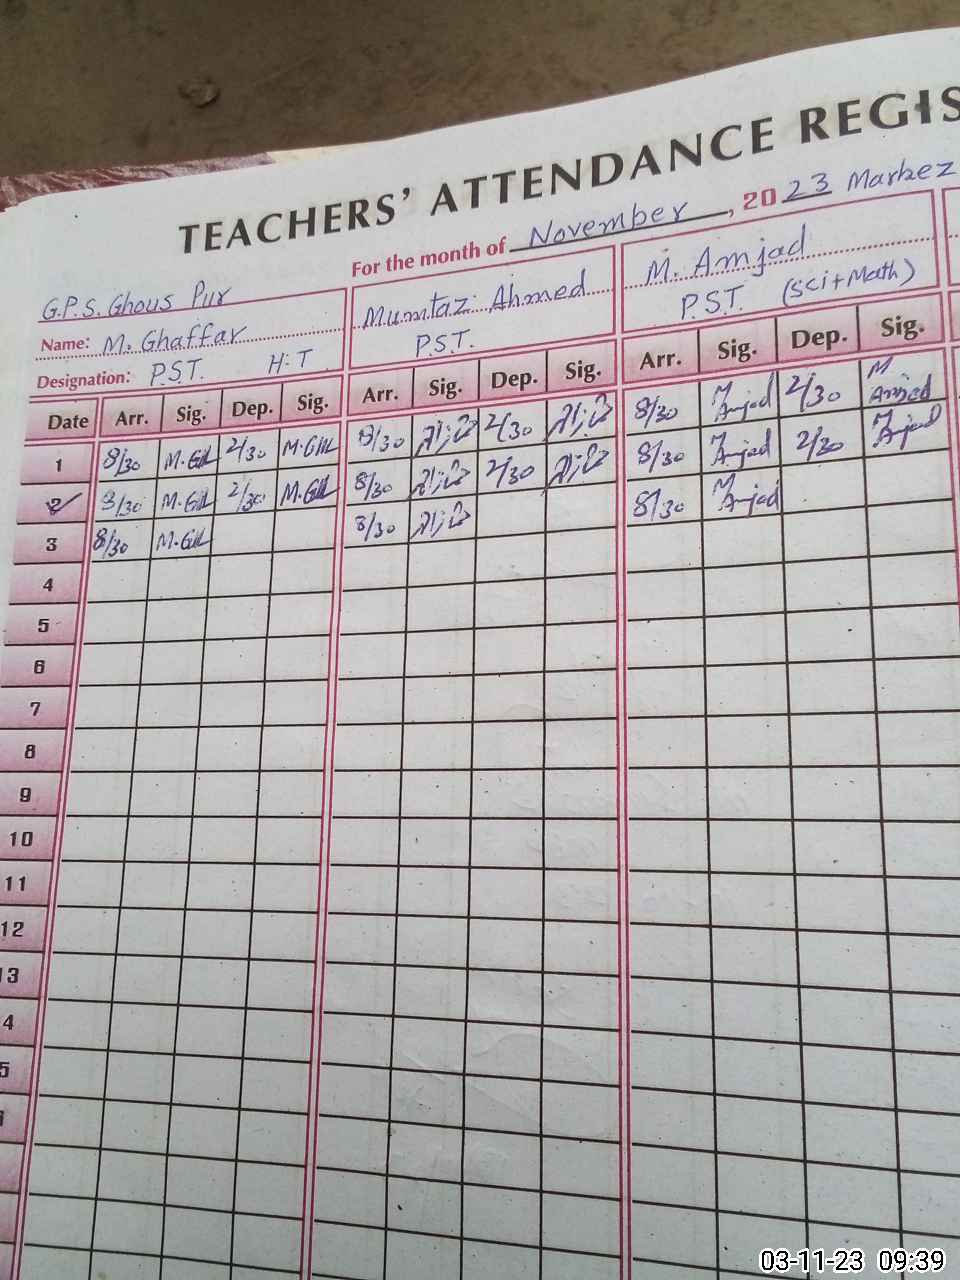 TEACHERS' ATTENDANCE REGIS
For the month of November, 2023 Markez
G.P.S. Ghous Pur
Name: M. Ghaffar
Mumtaz Ahmed
M. Amjad
Designation: P.S.T. H.T
P.S.T.
P.S.T. (Sci+Math)
Date Arr. Sig. Dep. Sig. Arr. Sig. Dep. Sig. Arr. Sig. Dep. Sig.
1 8/30 2/30 8/30 2/30 8/30 M Amjad 2/30 M Amjad
2 8/30 2/30 8/30 2/30 8/30 M Amjad 2/30 M Amjad
3 8/30 8/30 8/30 M Amjad
4
5
6
7
8
9
10
11
12
13
4
5
03-11-23 09:39